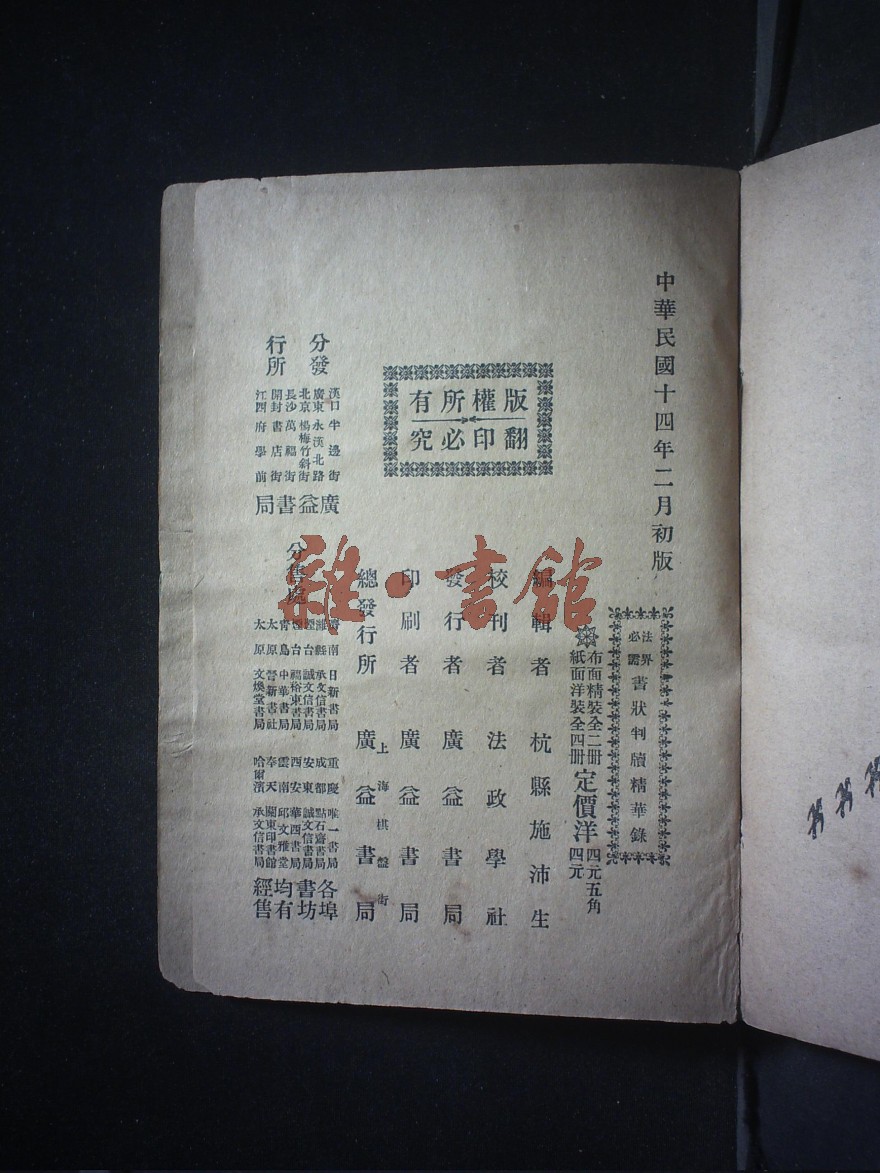 中華民國十四年二月初版
法界必需
書狀判牘精華錄
布面精裝全二册
紙面洋裝全四册
定價洋
四元五角
四元
版權所有
翻印必究
編輯者 杭縣施沛生
校刊者 法政學社
發行者 廣益書局
印刷者 廣益書局
總發行所 上海棋盤街 廣益書局
分發行所
漢口牛邊街
廣東永漢北路
北京楊梅竹斜街
長沙萬福街
開封書店街
江西府學前
廣益書局
分售處
濟南 日新書局
濰縣 承文信書局
煙台 誠文信書局
煙台 福裕東書局
青島 中華書局
太原 晉新書社
太原 文煥堂書局
重慶 唯一書局
成都 點石齋書局
安東 誠文信書局
西安 華西書局
雲南 邱文雅堂
奉天 關東印書館
哈爾濱 承文信書局
各埠書坊均有經售
雜·書館